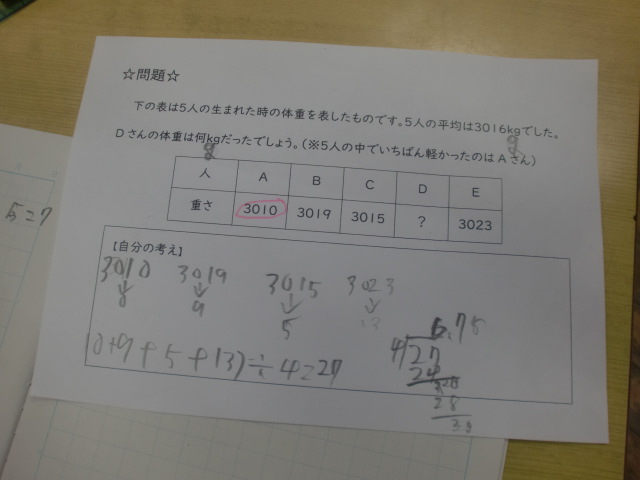 ☆問題☆
下の表は5人の生まれた時の体重を表したものです。5人の平均は3016kgでした。
g
Dさんの体重は何kgだったでしょう。(※5人の中でいちばん軽かったのはAさん)
g
人 A B C D E
重さ 3010 3019 3015 ? 3023
【自分の考え】
3010 3019 3015 3023
↓ ↓ ↓ ↓
0 9 5 13
(0+9+5+13)÷4=27
6.75
4)27
24
28
5=7